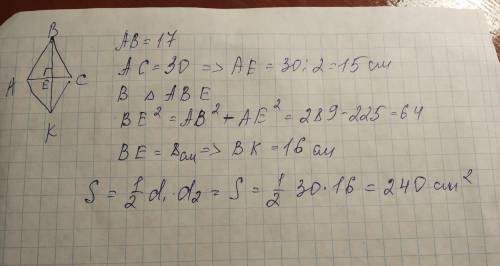 B
A
E
C
K
AB = 17
AC = 30 => AE = 30:2 = 15 см
В △ ABE
BE² = AB² + AE² = 289 - 225 = 64
BE = 8см => BK = 16 см
S = 1/2 d₁·d₂ = S = 1/2 30·16 = 240 см²